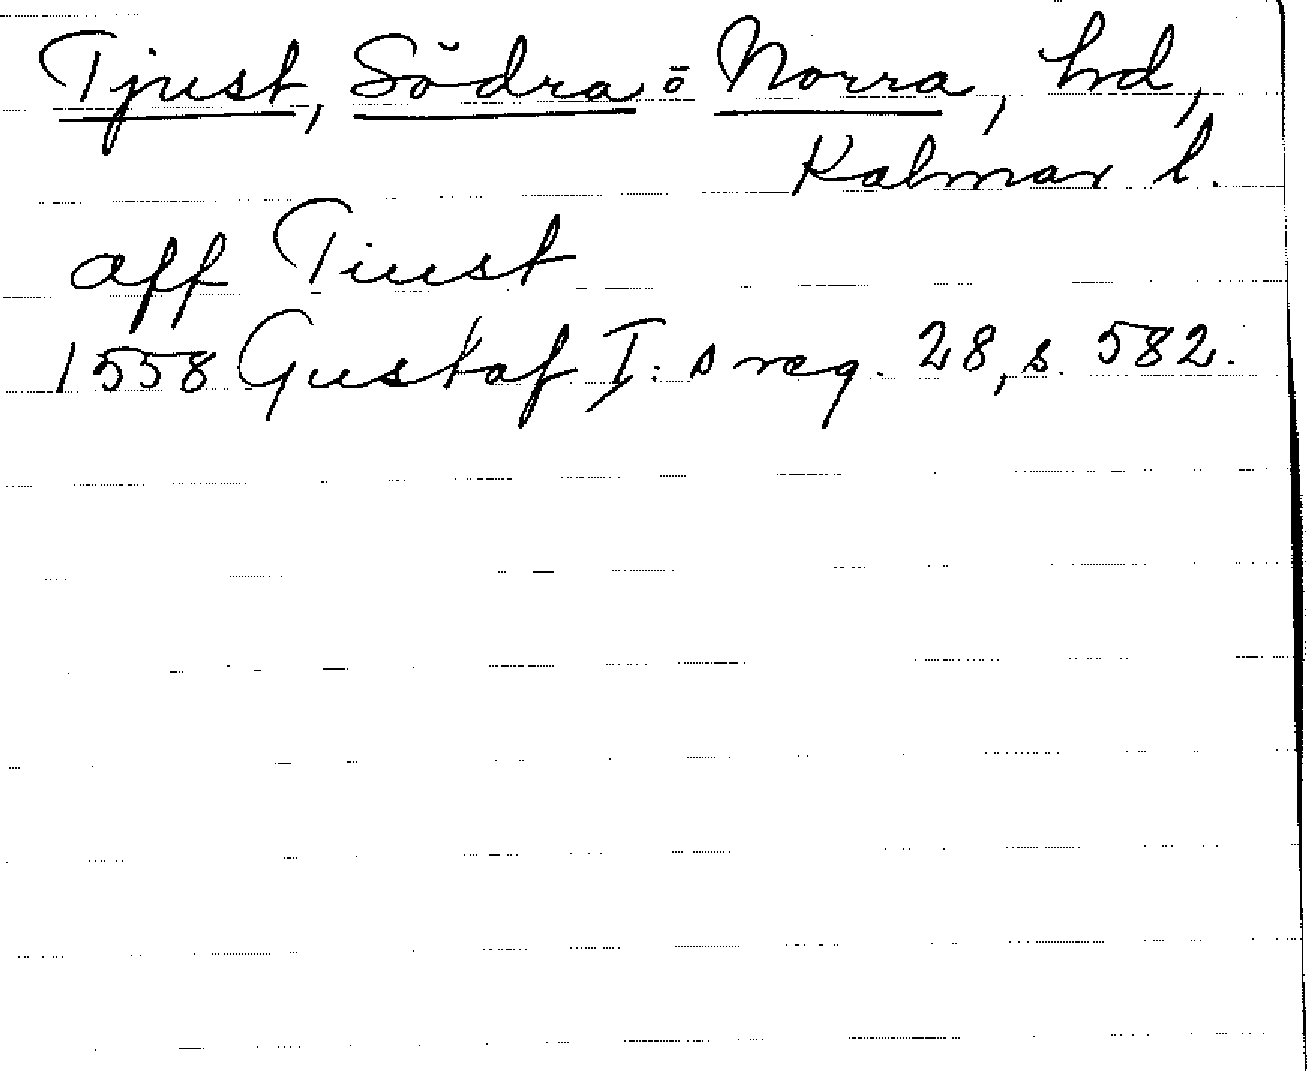 Tjust, Södra o Norra, hd,
Kalmar l.
aff Tiust
1558 Gustaf I:s reg. 28, s. 582.